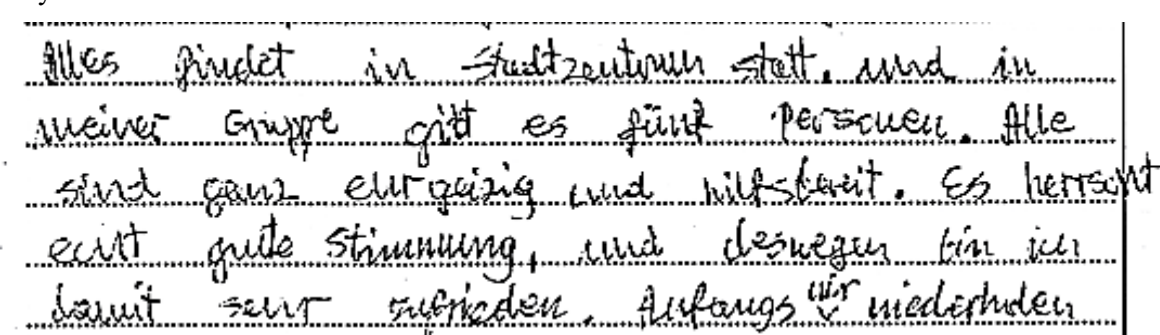 Alles findet in Stadtzentrum statt. und in
meiner Gruppe gibt es fünf Personen. Alle
sind ganz ehrgeizig und hilfsbereit. Es herrscht
echt gute Stimmung, und deswegen bin ich
damit sehr zufrieden. Anfangs wir